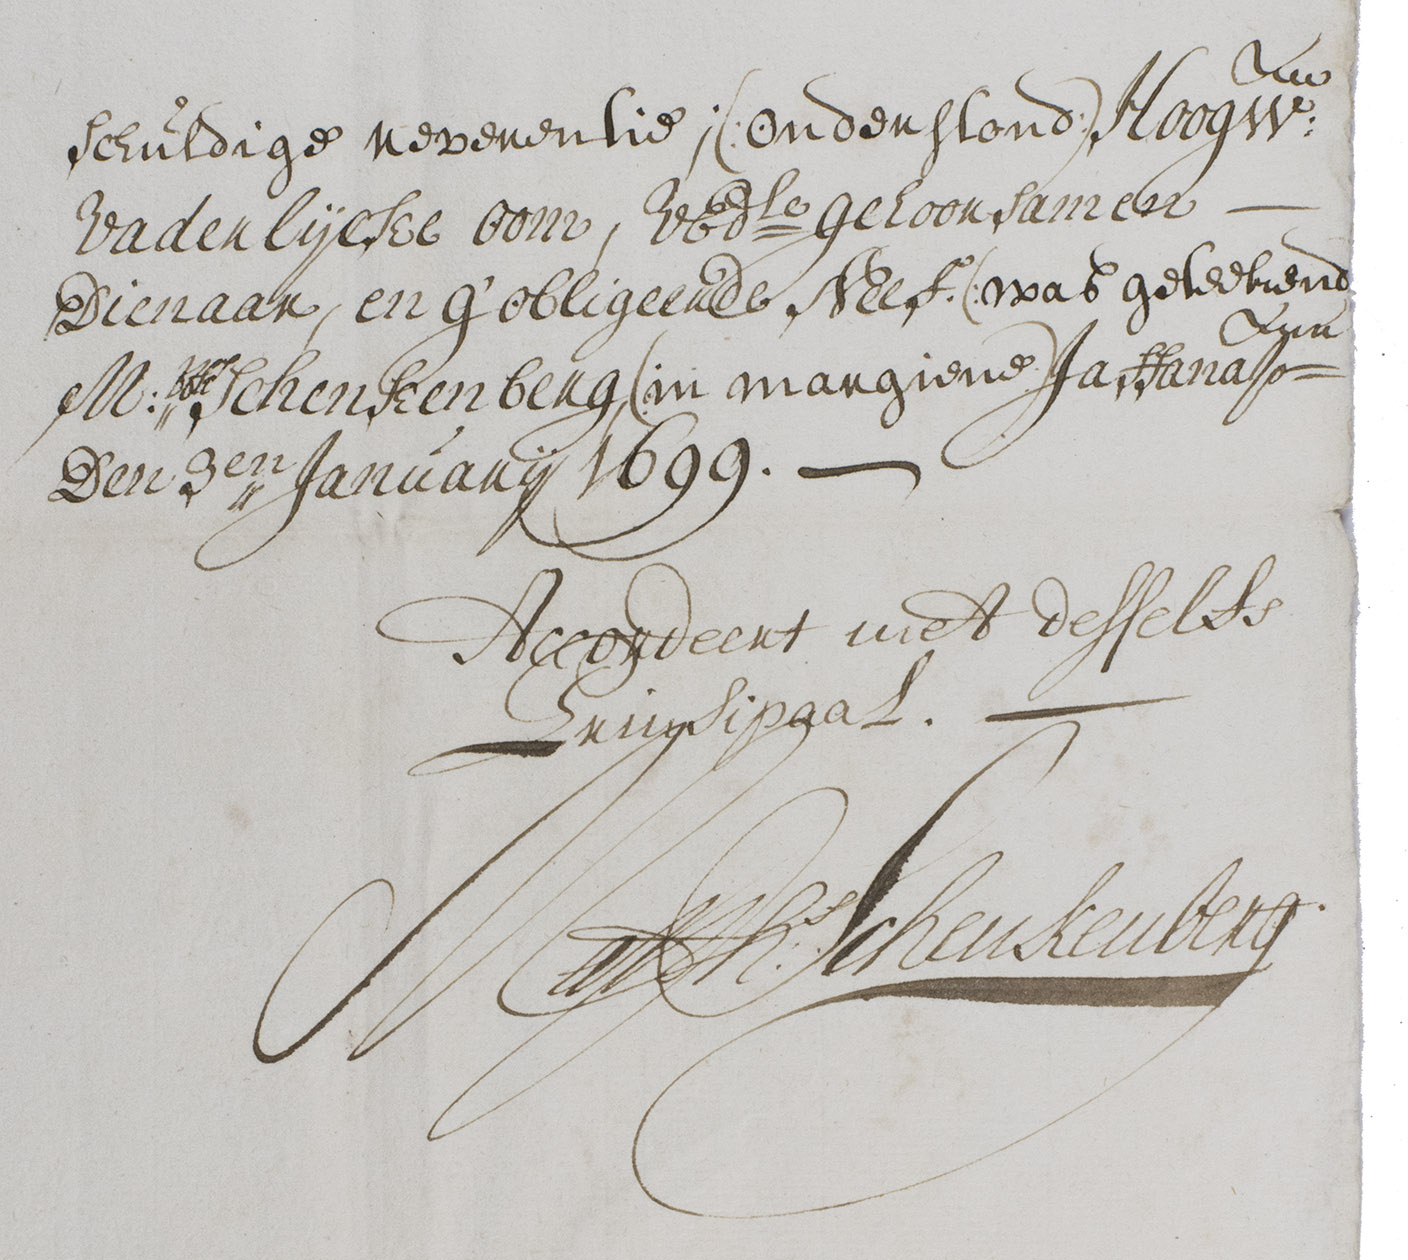 schuldige reverentie, /(: onderstond :) Hoogw:e
vaderlycke oom, UEdle gehoorsamen —
Dienaar, en g'obligeerde Neef. (: was geteekend
M: Schenkenberg (: in margiene :) Jaffanap=
Den 3en January 1699. —
Accordeert met desselfs
Prinsipaal. —
Matths. Schenkenberg.